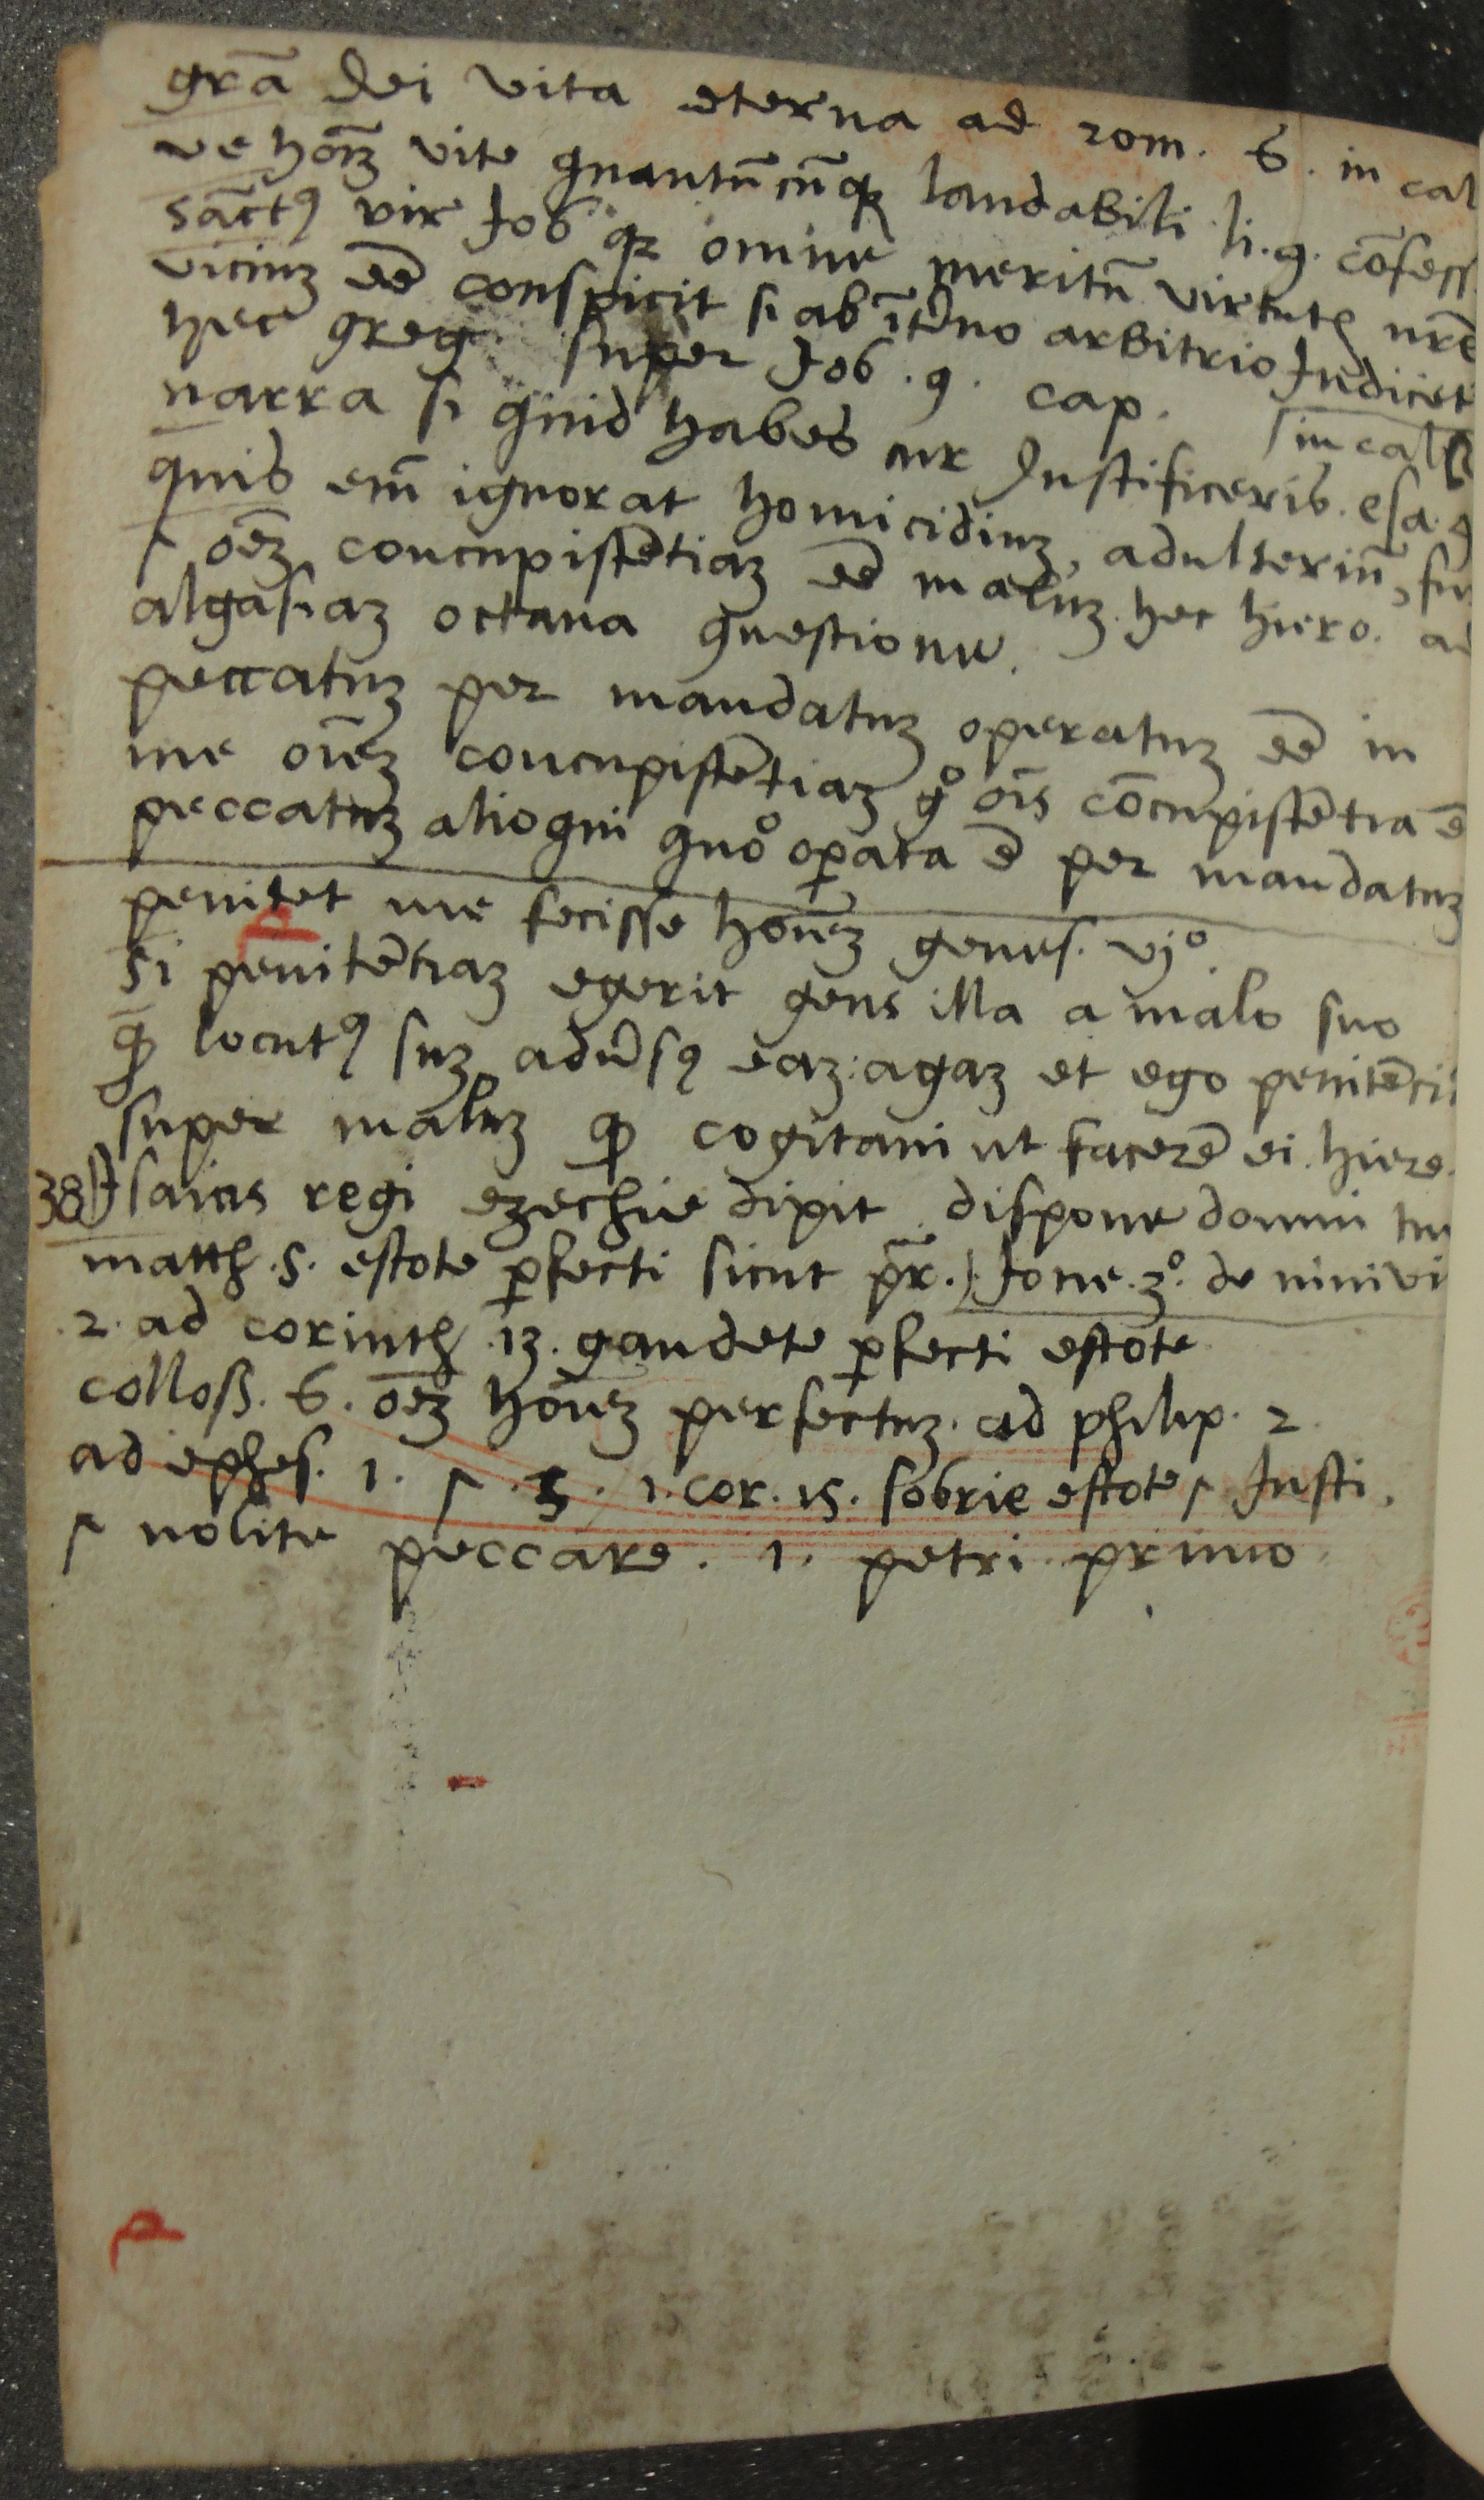 grã dei vita eterna ad rom. 6. in cal
ve hoĩz vite quantũcũqz laudabili li. 9. cõfess
sãctꝰ vir Job qz omne meritũ virtutꝭ nr̃e
viciuz eẽ conspicit si ab ĩt̃no arbitrio Judicet
hec greg. super Job . 9 . cap. / in calce
narra si quid habes ut Justificeris. esa. 4
quis em̃ ignorat homicidiuz, adulteriũ, fur
⁊ oẽz concupistẽtiaz eẽ maluz. hec hiero. ad
algasiaz octaua questione.
peccatuz per mandatuz operatuz eẽ in
me oĩez concupistẽtiaz gͦ oĩs cõcupistẽtia ẽ
peccatuz alioqui quoͦ oꝑata ẽ per mandatuz
penitet me fecisse hoĩez genes. vjͦ.
Si penitẽtiaz egerit gens illa a malo suo
qđ locutꝰ suz adũsꝰ eaz: agaz et ego penitẽci
super maluz qđ cogitaui ut facerẽ ei. hiere.
38 Jsaias regi ezechie dixit dispone domui tue
matth. 5. estote ꝑfecti sicut pr̃. Jone. 3ͦ. de ninivi
. 2. ad corinth. 13. gaudete ꝑfecti estote
colloss. 6. oẽz hoĩez perfectuz. ad philip. 2.
ad ephes. 1. ⁊ . 5. 1. cor. 15. sobrie estote ⁊ Justi.
⁊ nolite peccare. 1. petri primo.